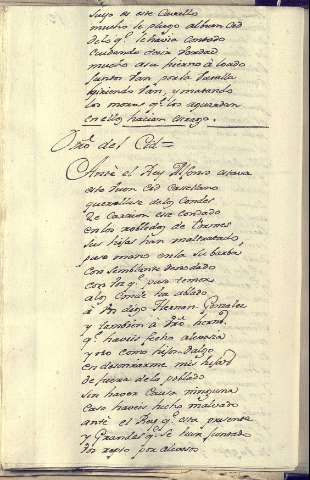 suyo es este Cavallo
mucho le plugo al buen Cid
de lo q.e le havia contado
cuidando ser a verdad
mucho a su hierno á loado
juntos van por la batalla
hiriendo van, y matando
los moros q.e los aguardan
en ellos hacian estrago.
Otro del Cid=
Ante el Rey Alfonso estava
este buen Cid Castellano
querellase de los Condes
de Carrion ese Condado
en los robledos de Tormes
sus hijas han maltratado,
puso mano en la su barba,
con semblante denodado
con la q.e van
a los Conde ha ablado
á vos digo Hernan Gonzalez
y tambien á Dro. hermo.
q.e haveis fecho alevosia
y no como hijos dalgo
en desonrarme mis hijas
de fuera de lo poblado
sin haver Causa ninguna
caso haveis hecho malvado
ante el Rey q.e esta presente
y Grandes q.e se han juntado
vos repto por alevoso